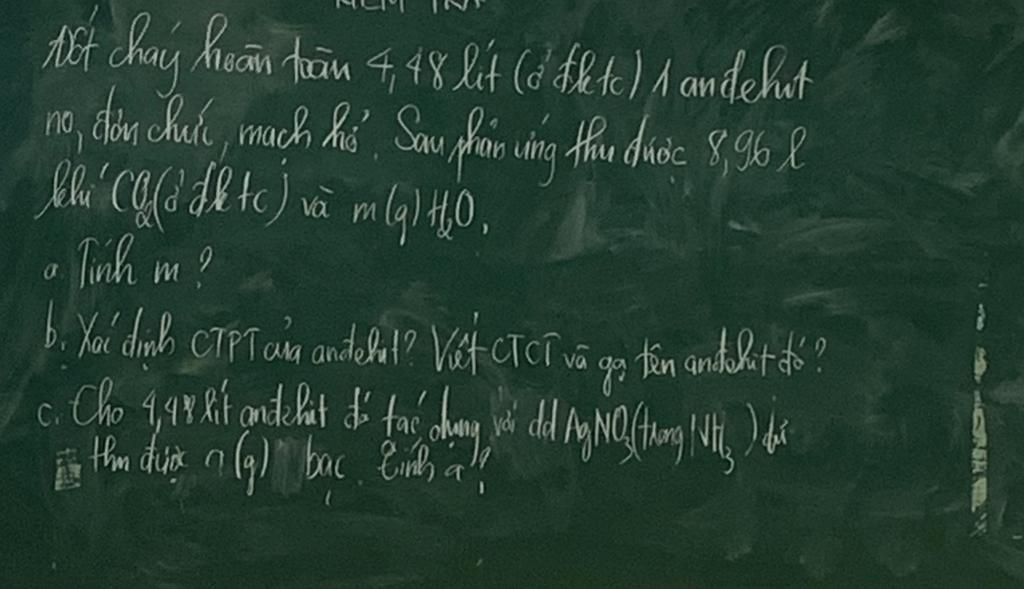 Đốt cháy hoàn toàn 4,48 lít (ở đktc) 1 andehit
no, đơn chức, mạch hở. Sau phản ứng thu được 8,96 l
khí CO2 (ở đktc) và m(g) H2O.
a. Tính m?
b. Xác định CTPT của andehit? Viết CTCT và gọi tên andehit đó?
c. Cho 4,48 lít andehit đó tác dụng với dd AgNO3 (trong NH3) dư
thu được a (g) bạc. Tính a?